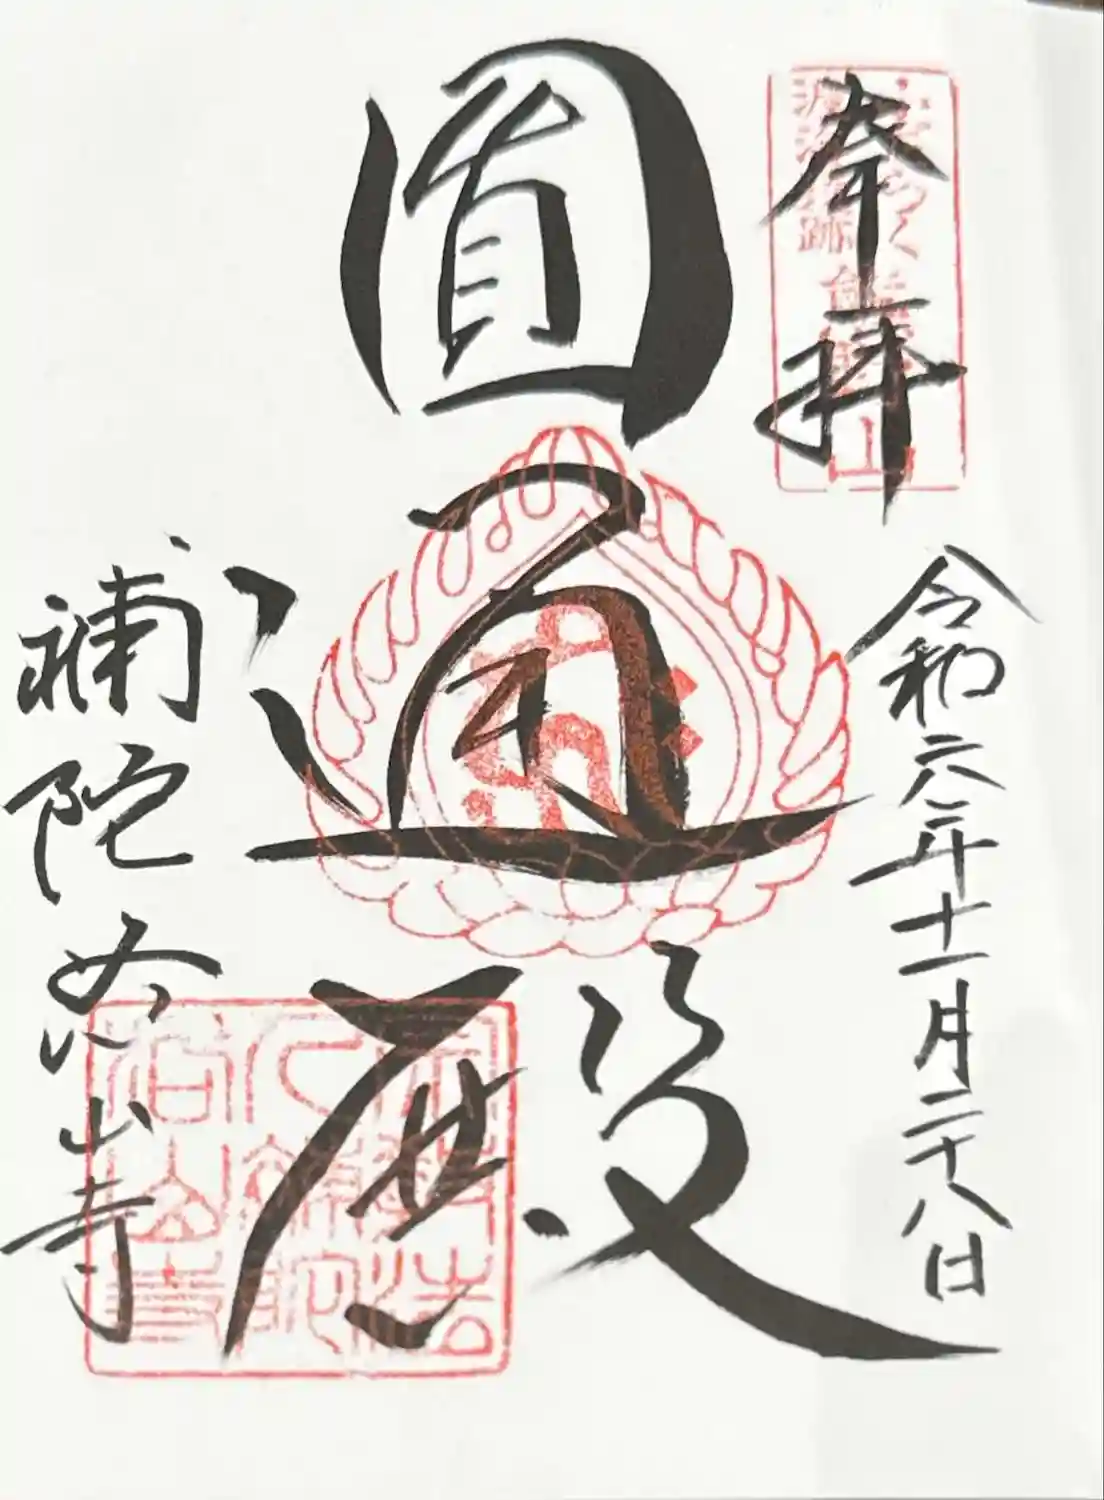 奉拝
令和六年十一月二十八日
圓通殿
補陀洛山寺